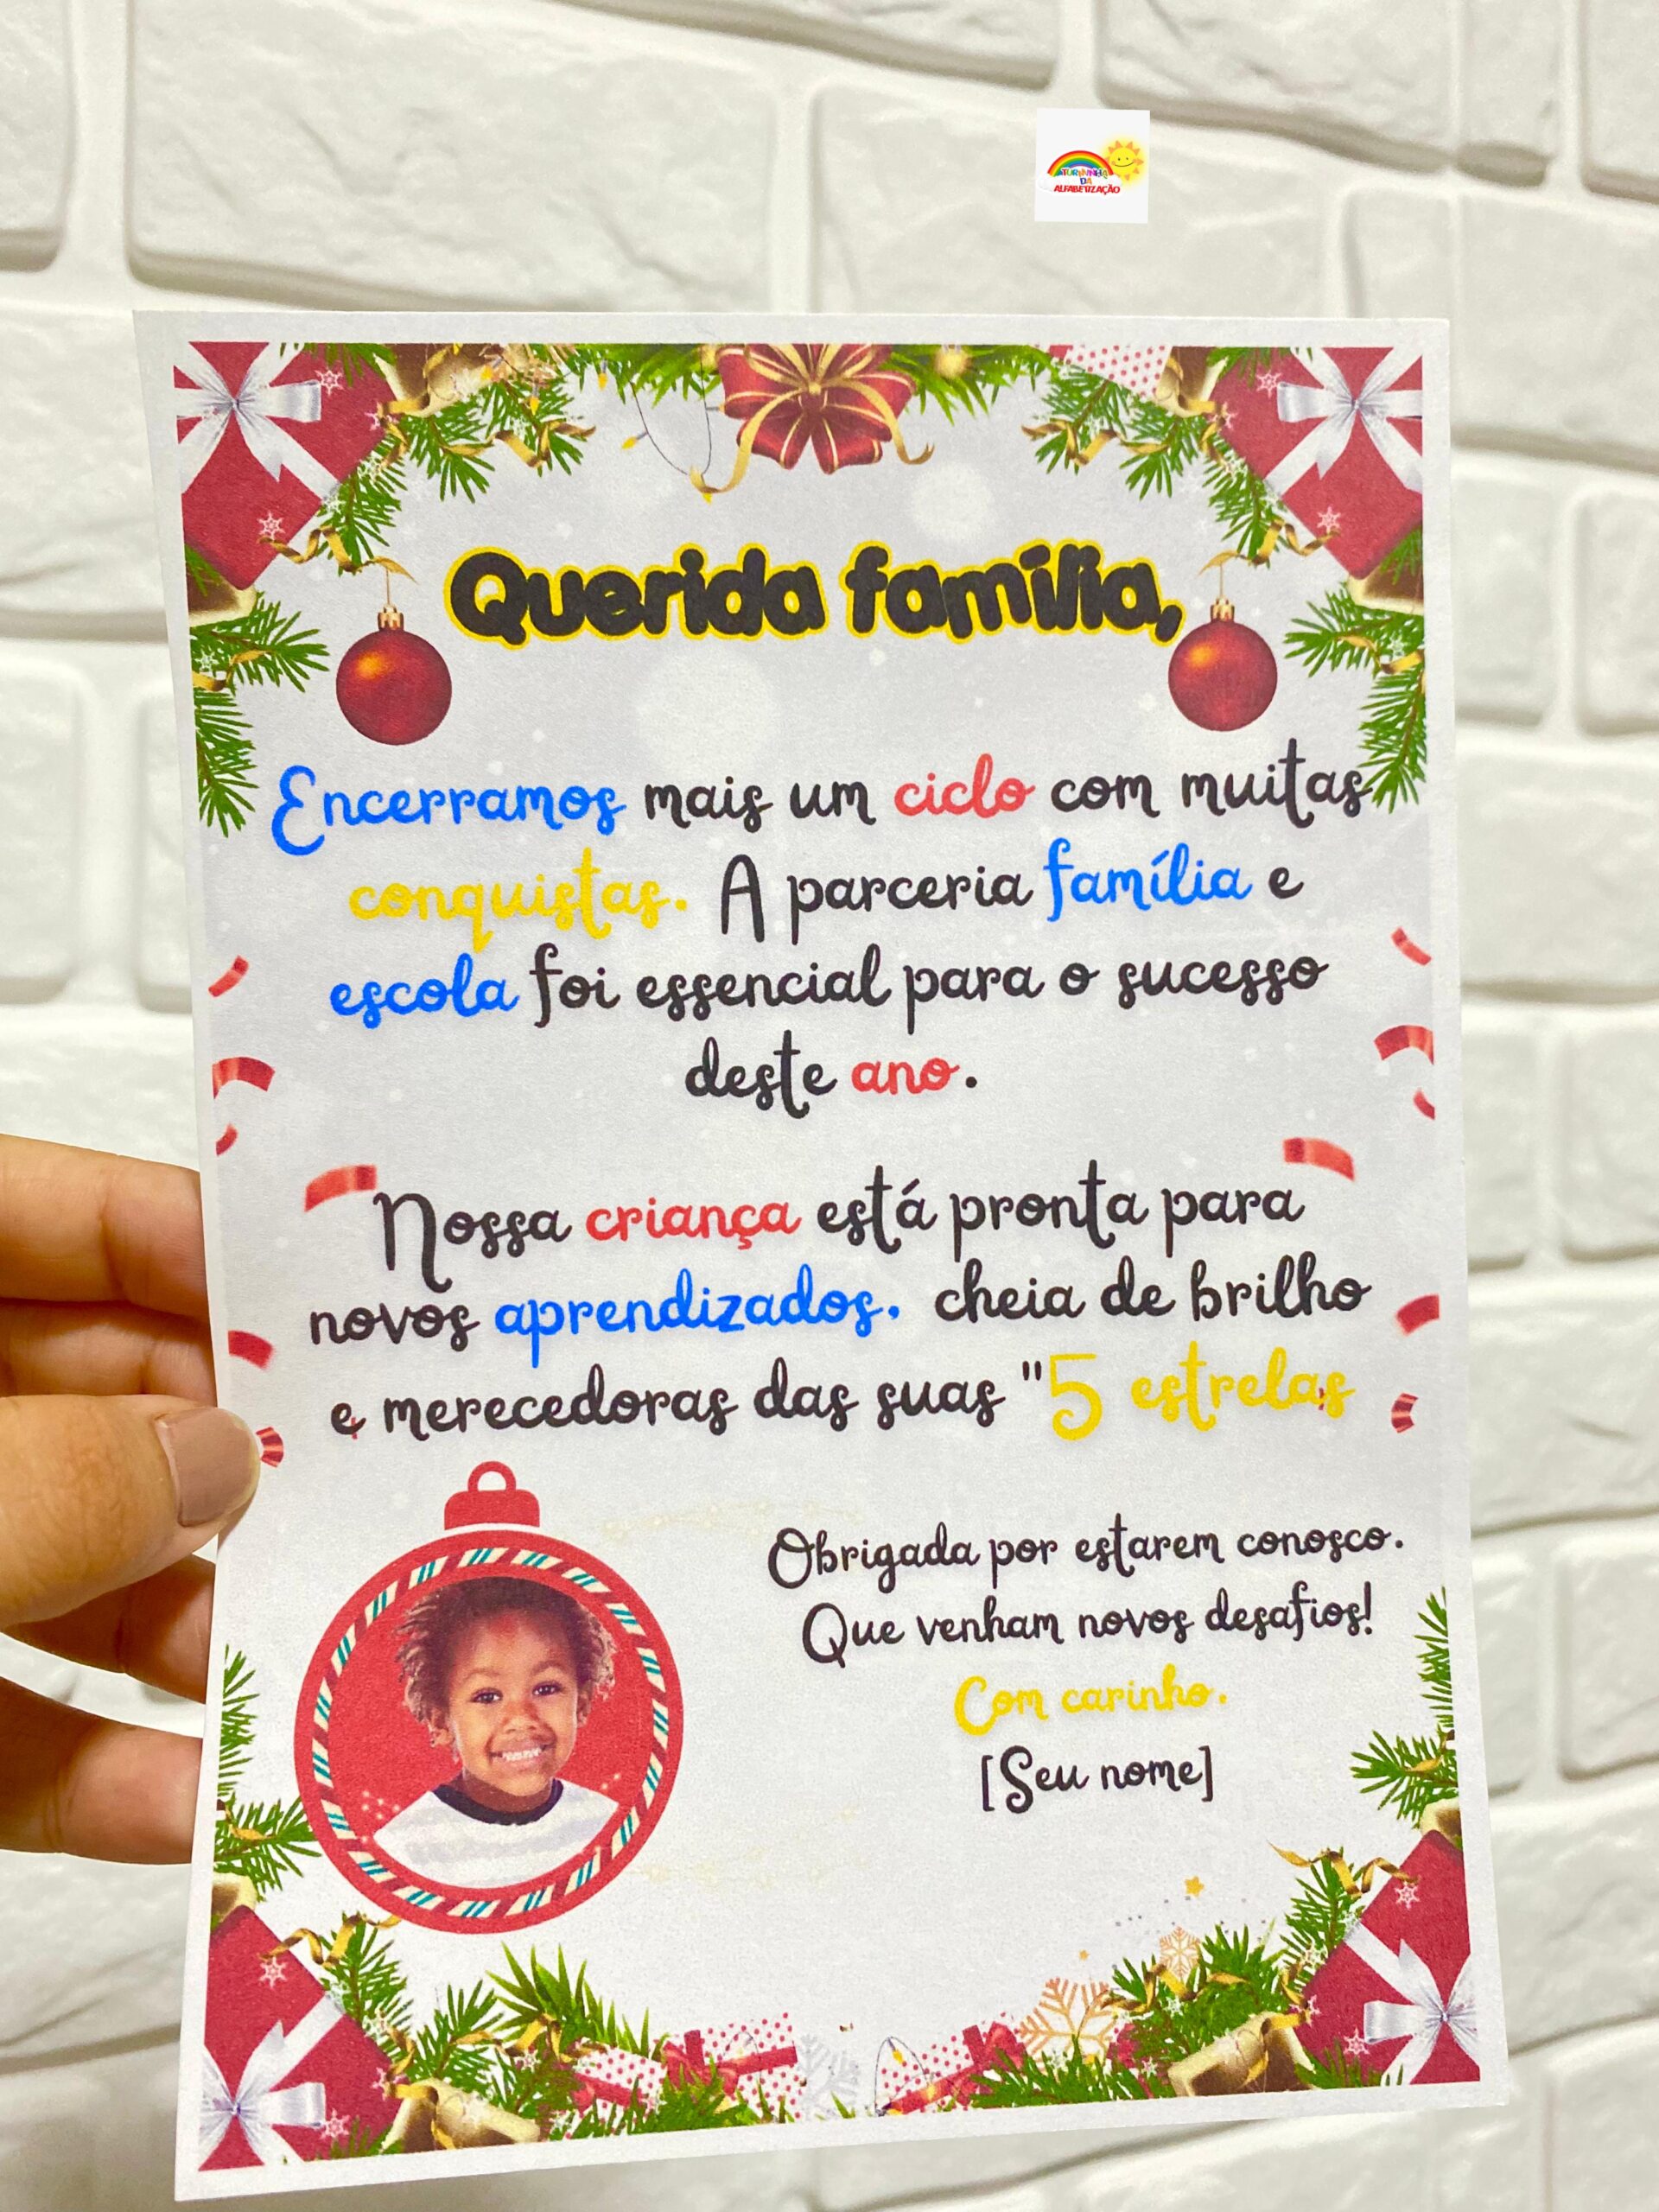 TURMINHA
DA
ALFABETIZAÇÃO
Querida família,
Encerramos mais um ciclo com muitas
conquistas. A parceria família e
escola foi essencial para o sucesso
deste ano.
Nossa criança está pronta para
novos aprendizados, cheia de brilho
e merecedoras das suas "5 estrelas
Obrigada por estarem conosco.
Que venham novos desafios!
Com carinho.
[Seu nome]